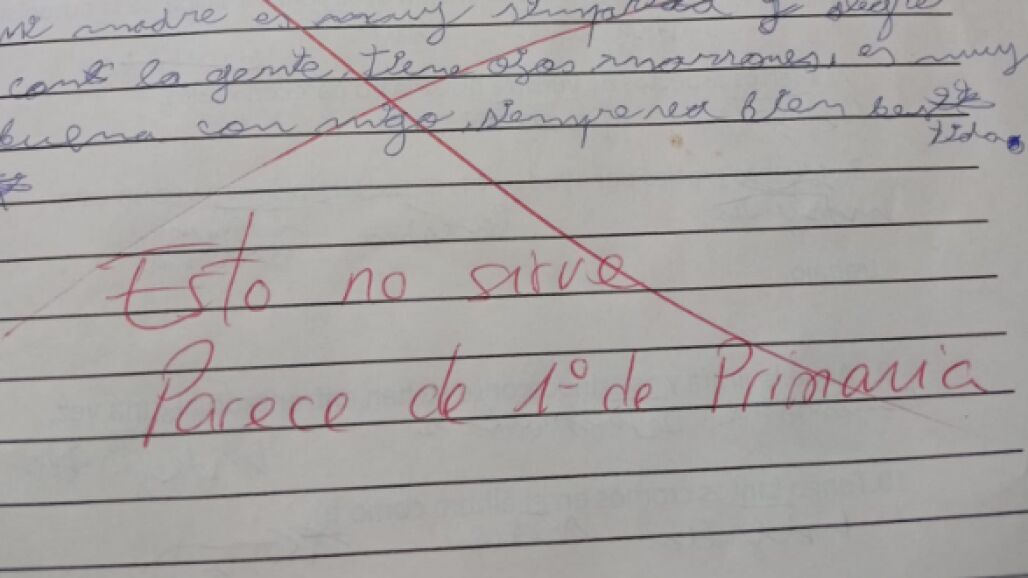 mi madre es muy simpatica y alegre
con la gente, tiene ojos marrones, es muy
buena con migo, siempre va bien ves
tida.
Esto no sirve
Parece de 1º de Primaria